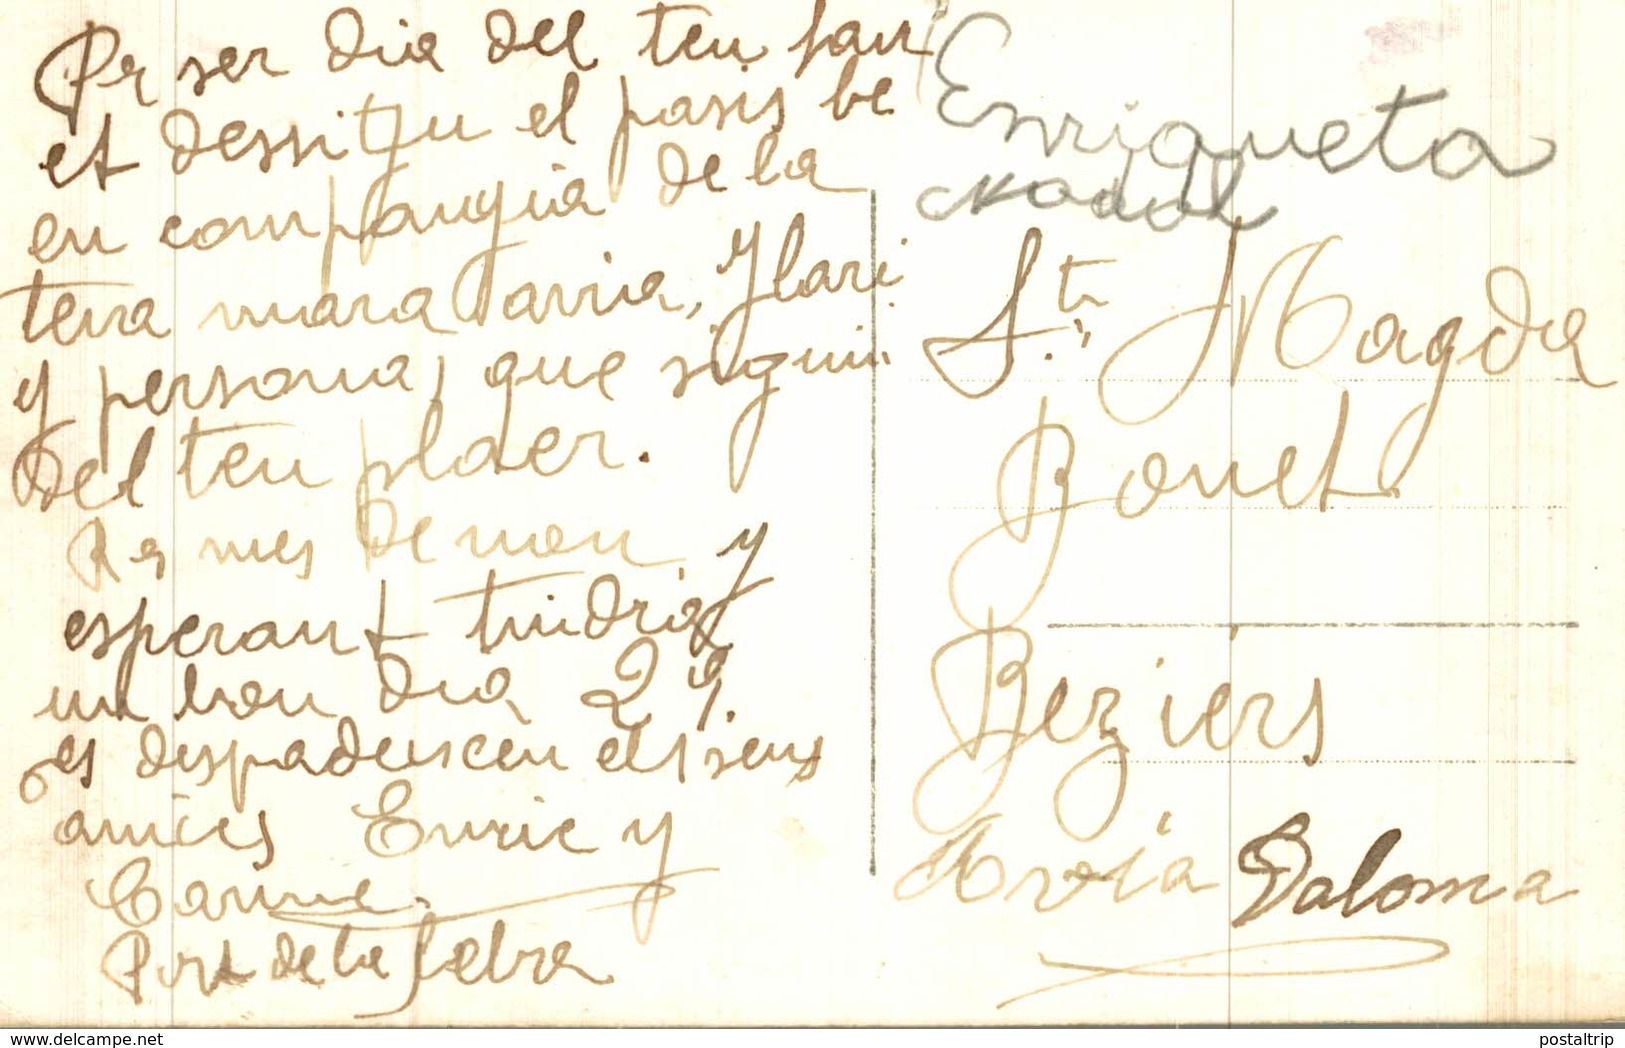 Per ser dia del teu san
et dessitju el pasis be
en companyia de la
teva mara avia, Ilari
y persona, que siguin
del teu plaer.
Res mes de nou y
esperant tindrig
un bon dia 29.
es despadeuscen els seus
amics Enric y
Carme.
Port de la Selva
Enriqueta
Nadal
Sta Magda
Bonet
Beziers
Avia Paloma
www.delcampe.net
postaltrip